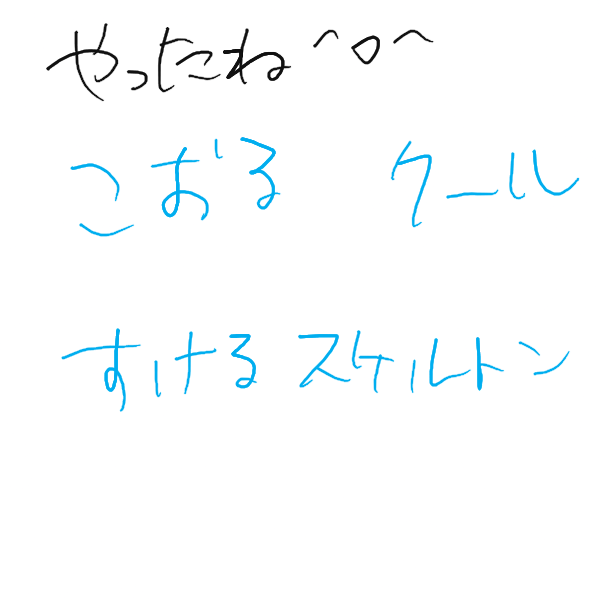 やったね ^o^
こおる クール
すける スケルトン